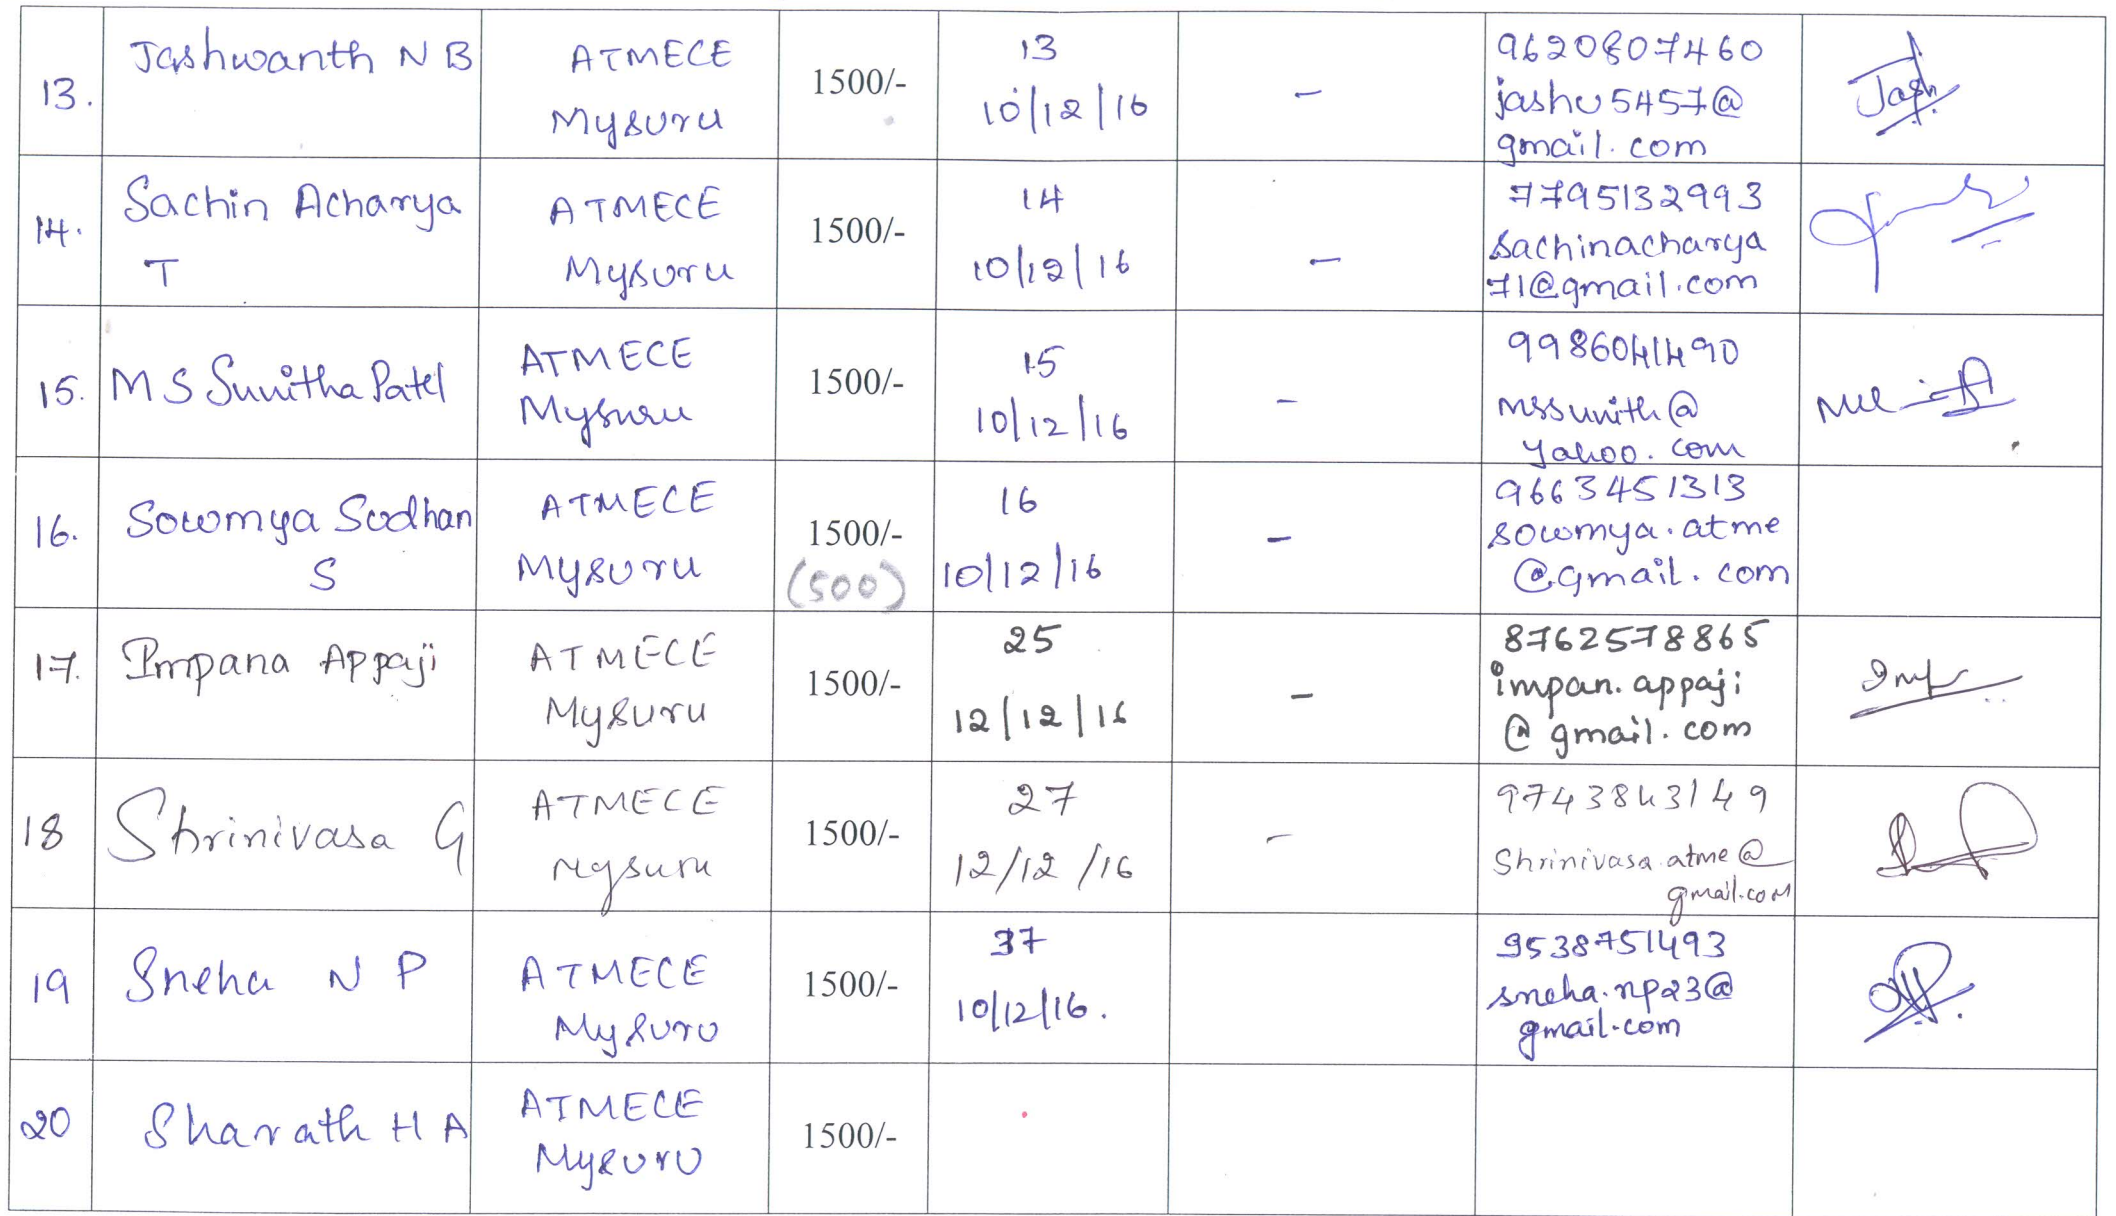 13.
Jashwanth N B
ATMECE
Mysuru
1500/-
13
10/12/16
-
9620807460
jashu5457@
gmail.com
Jash
14.
Sachin Acharya
T
ATMECE
Mysuru
1500/-
14
10/12/16
-
7795132993
sachinacharya
71@gmail.com
15.
M S Sunitha Patel
ATMECE
Mysuru
1500/-
15
10/12/16
-
9986041490
mssunith@
yahoo.com
16.
Sowmya Sudhan
S
ATMECE
Mysuru
1500/-
(500)
16
10/12/16
-
9663451313
sowmya.atme
@gmail.com
17.
Impana Appaji
ATMECE
Mysuru
1500/-
25
12/12/16
-
8762578865
impan.appaji
@gmail.com
18
Shrinivasa G
ATMECE
Mysuru
1500/-
27
12/12/16
-
9743843149
Shrinivasa.atme@
gmail.com
19
Sneha N P
ATMECE
Mysuru
1500/-
37
10/12/16.
9538751493
sneha.np23@
gmail.com
20
Sharath H A
ATMECE
Mysuru
1500/-